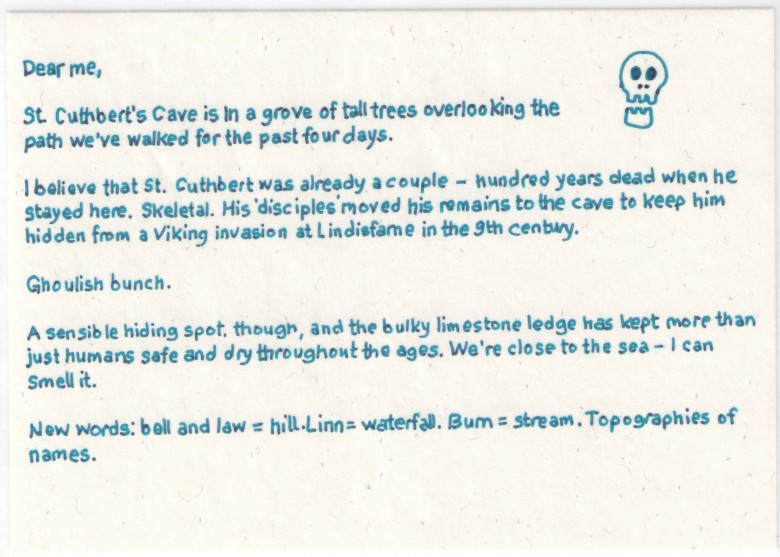 Dear me,
St. Cuthbert's Cave is in a grove of tall trees overlooking the
path we've walked for the past four days.
I believe that St. Cuthbert was already a couple - hundred years dead when he
stayed here. Skeletal. His 'disciples' moved his remains to the cave to keep him
hidden from a Viking invasion at Lindisfarne in the 9th century.
Ghoulish bunch.
A sensible hiding spot, though, and the bulky limestone ledge has kept more than
just humans safe and dry throughout the ages. We're close to the sea - I can
smell it.
New words: bell and law = hill. Linn = waterfall. Burn = stream. Topographies of
names.